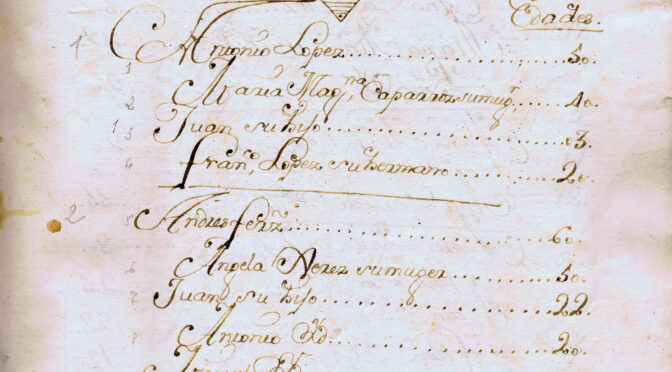 Edades.
1 Antonio Lopez 50.
1 Maria Mag.na Caparroz su mug.r 40.
2
13 Juan su hijo 03.
4 Fran.co Lopez su hermano 20.
2 5 Andres Ferz. 60.
6 Angela Nerez su muger 50.
7 Juan su hijo 22.
8 Antonio 20.